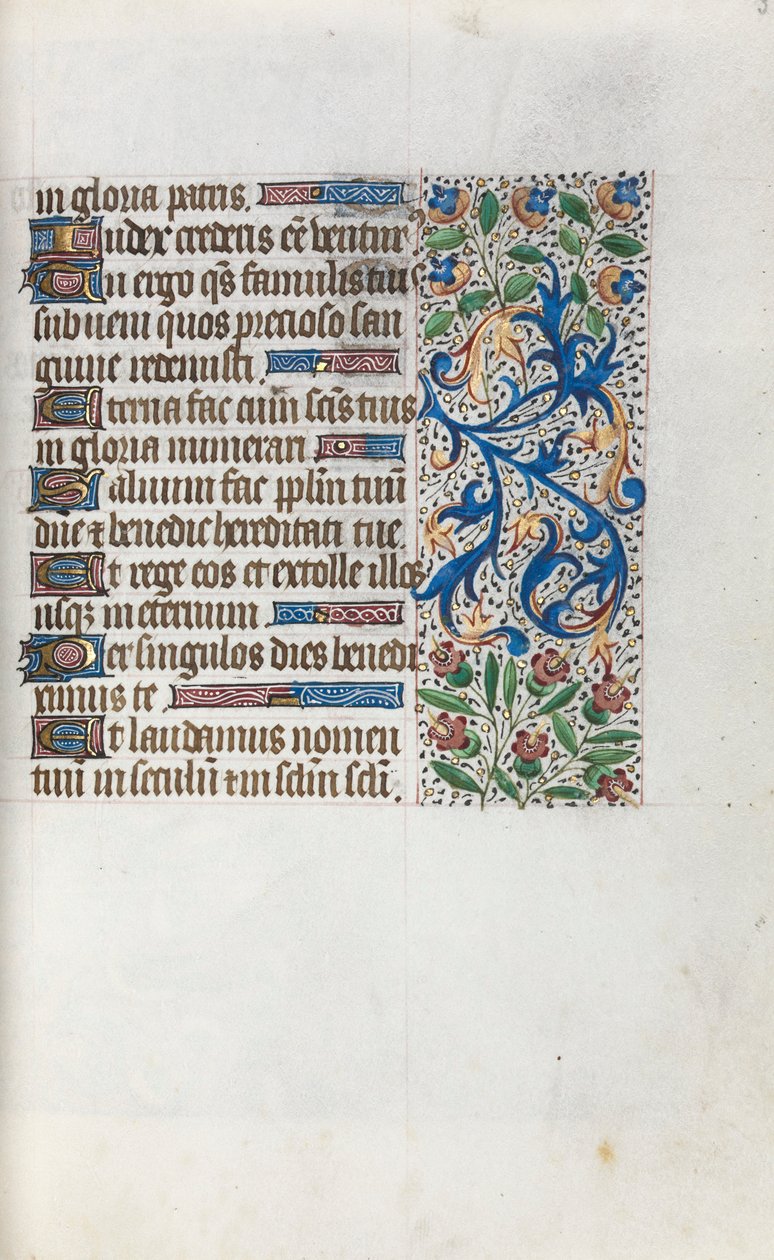 in gloria patris.
Iudex crederis eē ventur⁹
Tu ergo qs̄ famulis tuis
subveni quos precioso san
guine redemisti.
Eterna fac cum scīs tuis
in gloria numerari
Saluum fac pplm̄ tuū
dn̄e ⁊ benedic hereditati tue.
Et rege eos et extolle illos
usqꝫ in eternum
Per singulos dies benedi
cimus te.
Et laudamus nomen
tuū in seculū ⁊ in sclm̄ scli̅.